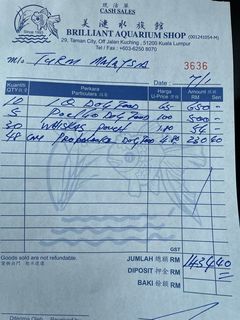 現 法 單
CASH SALES
美 漣 水 族 館
BRILLIANT AQUARIUM SHOP (001241054-H)
29, Taman City, Off Jalan Kuching, 51200 Kuala Lumpur
Tel : +603-6250 8070
Since 1982
M/s TURM MALAYSIA
3636
7/1
Kuantiti QTY Perkara Particulars Harga U-Price Amount RM Sen
10 IQ Dog Food 65 650 -
5 Dog Food 100 500 -
30 Whiskas Pouch 1.80 54 -
48 Can Dog Food 4.80 230 40
GST
Goods sold are not refundable.
貨物出門 恕不退還
JUMLAH 總額 RM 1434.40
DIPOSIT 押金 RM
BAKI 餘額 RM